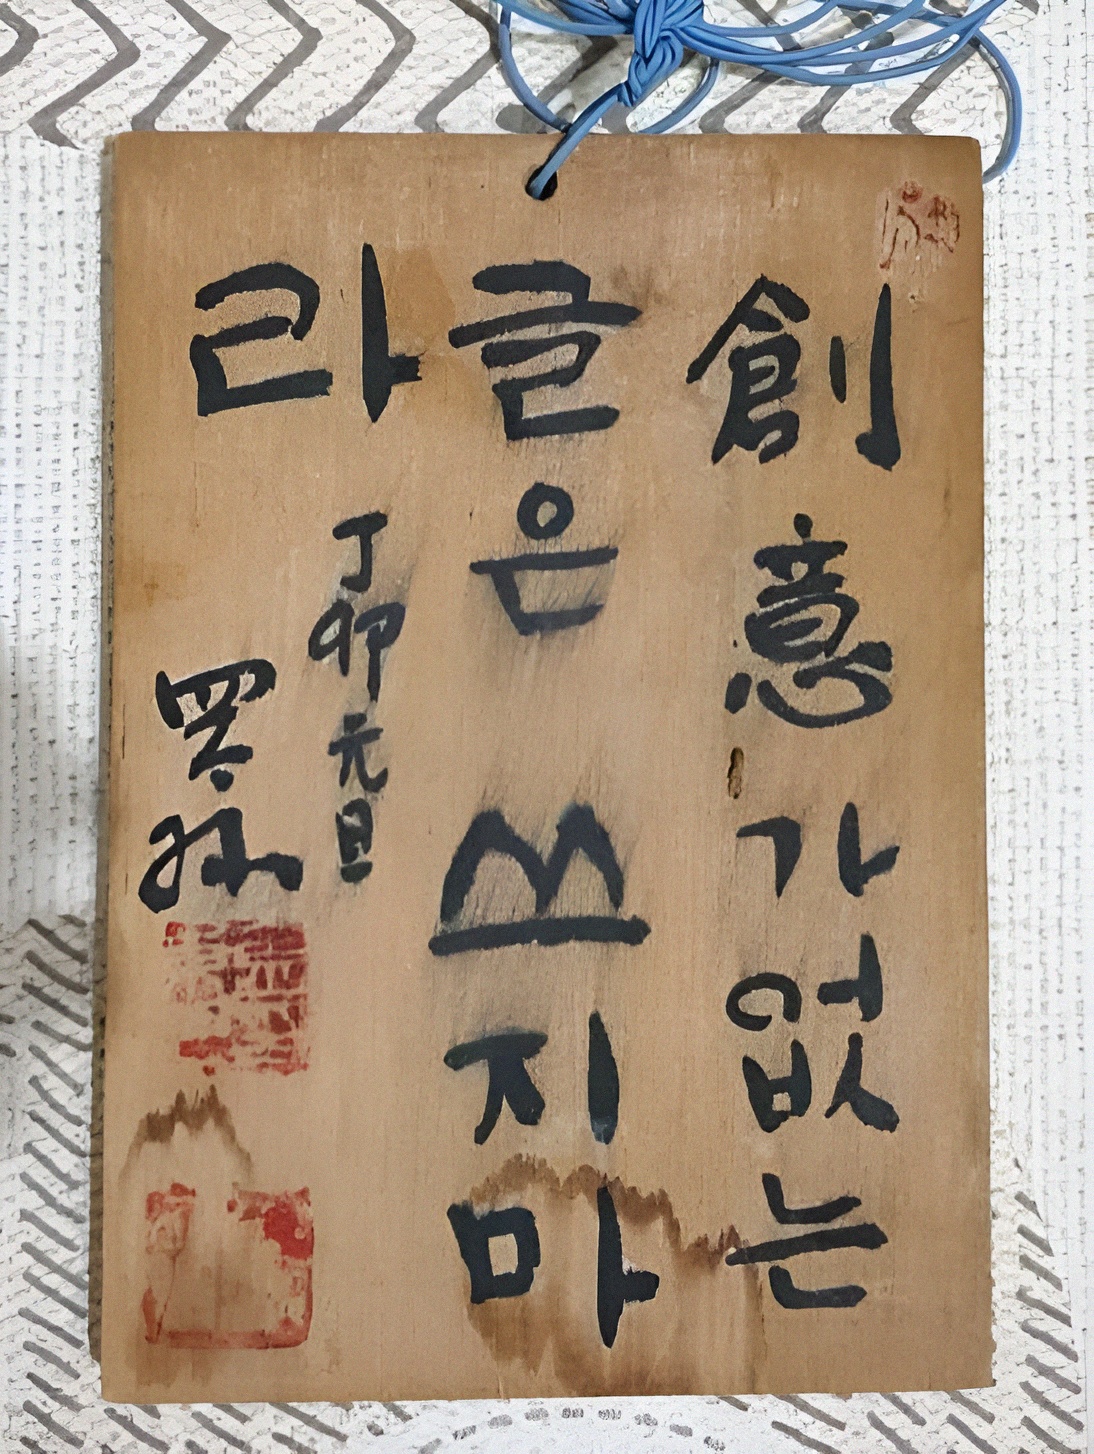 創意가없는
글은 쓰지마
라
丁卯元旦